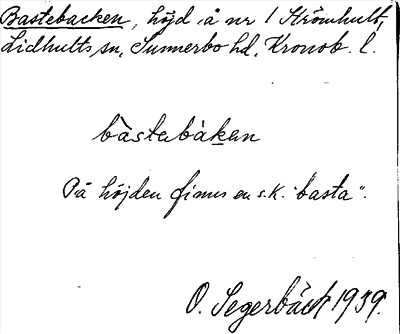 Bastebacken, höjd å nr 1 Strömhult,
Lidhults sn, Sunnerbo hd, Kronob. l.
bàstebàkan
På höjden finns en s.k. "basta".
O. Segerbäck 1939.